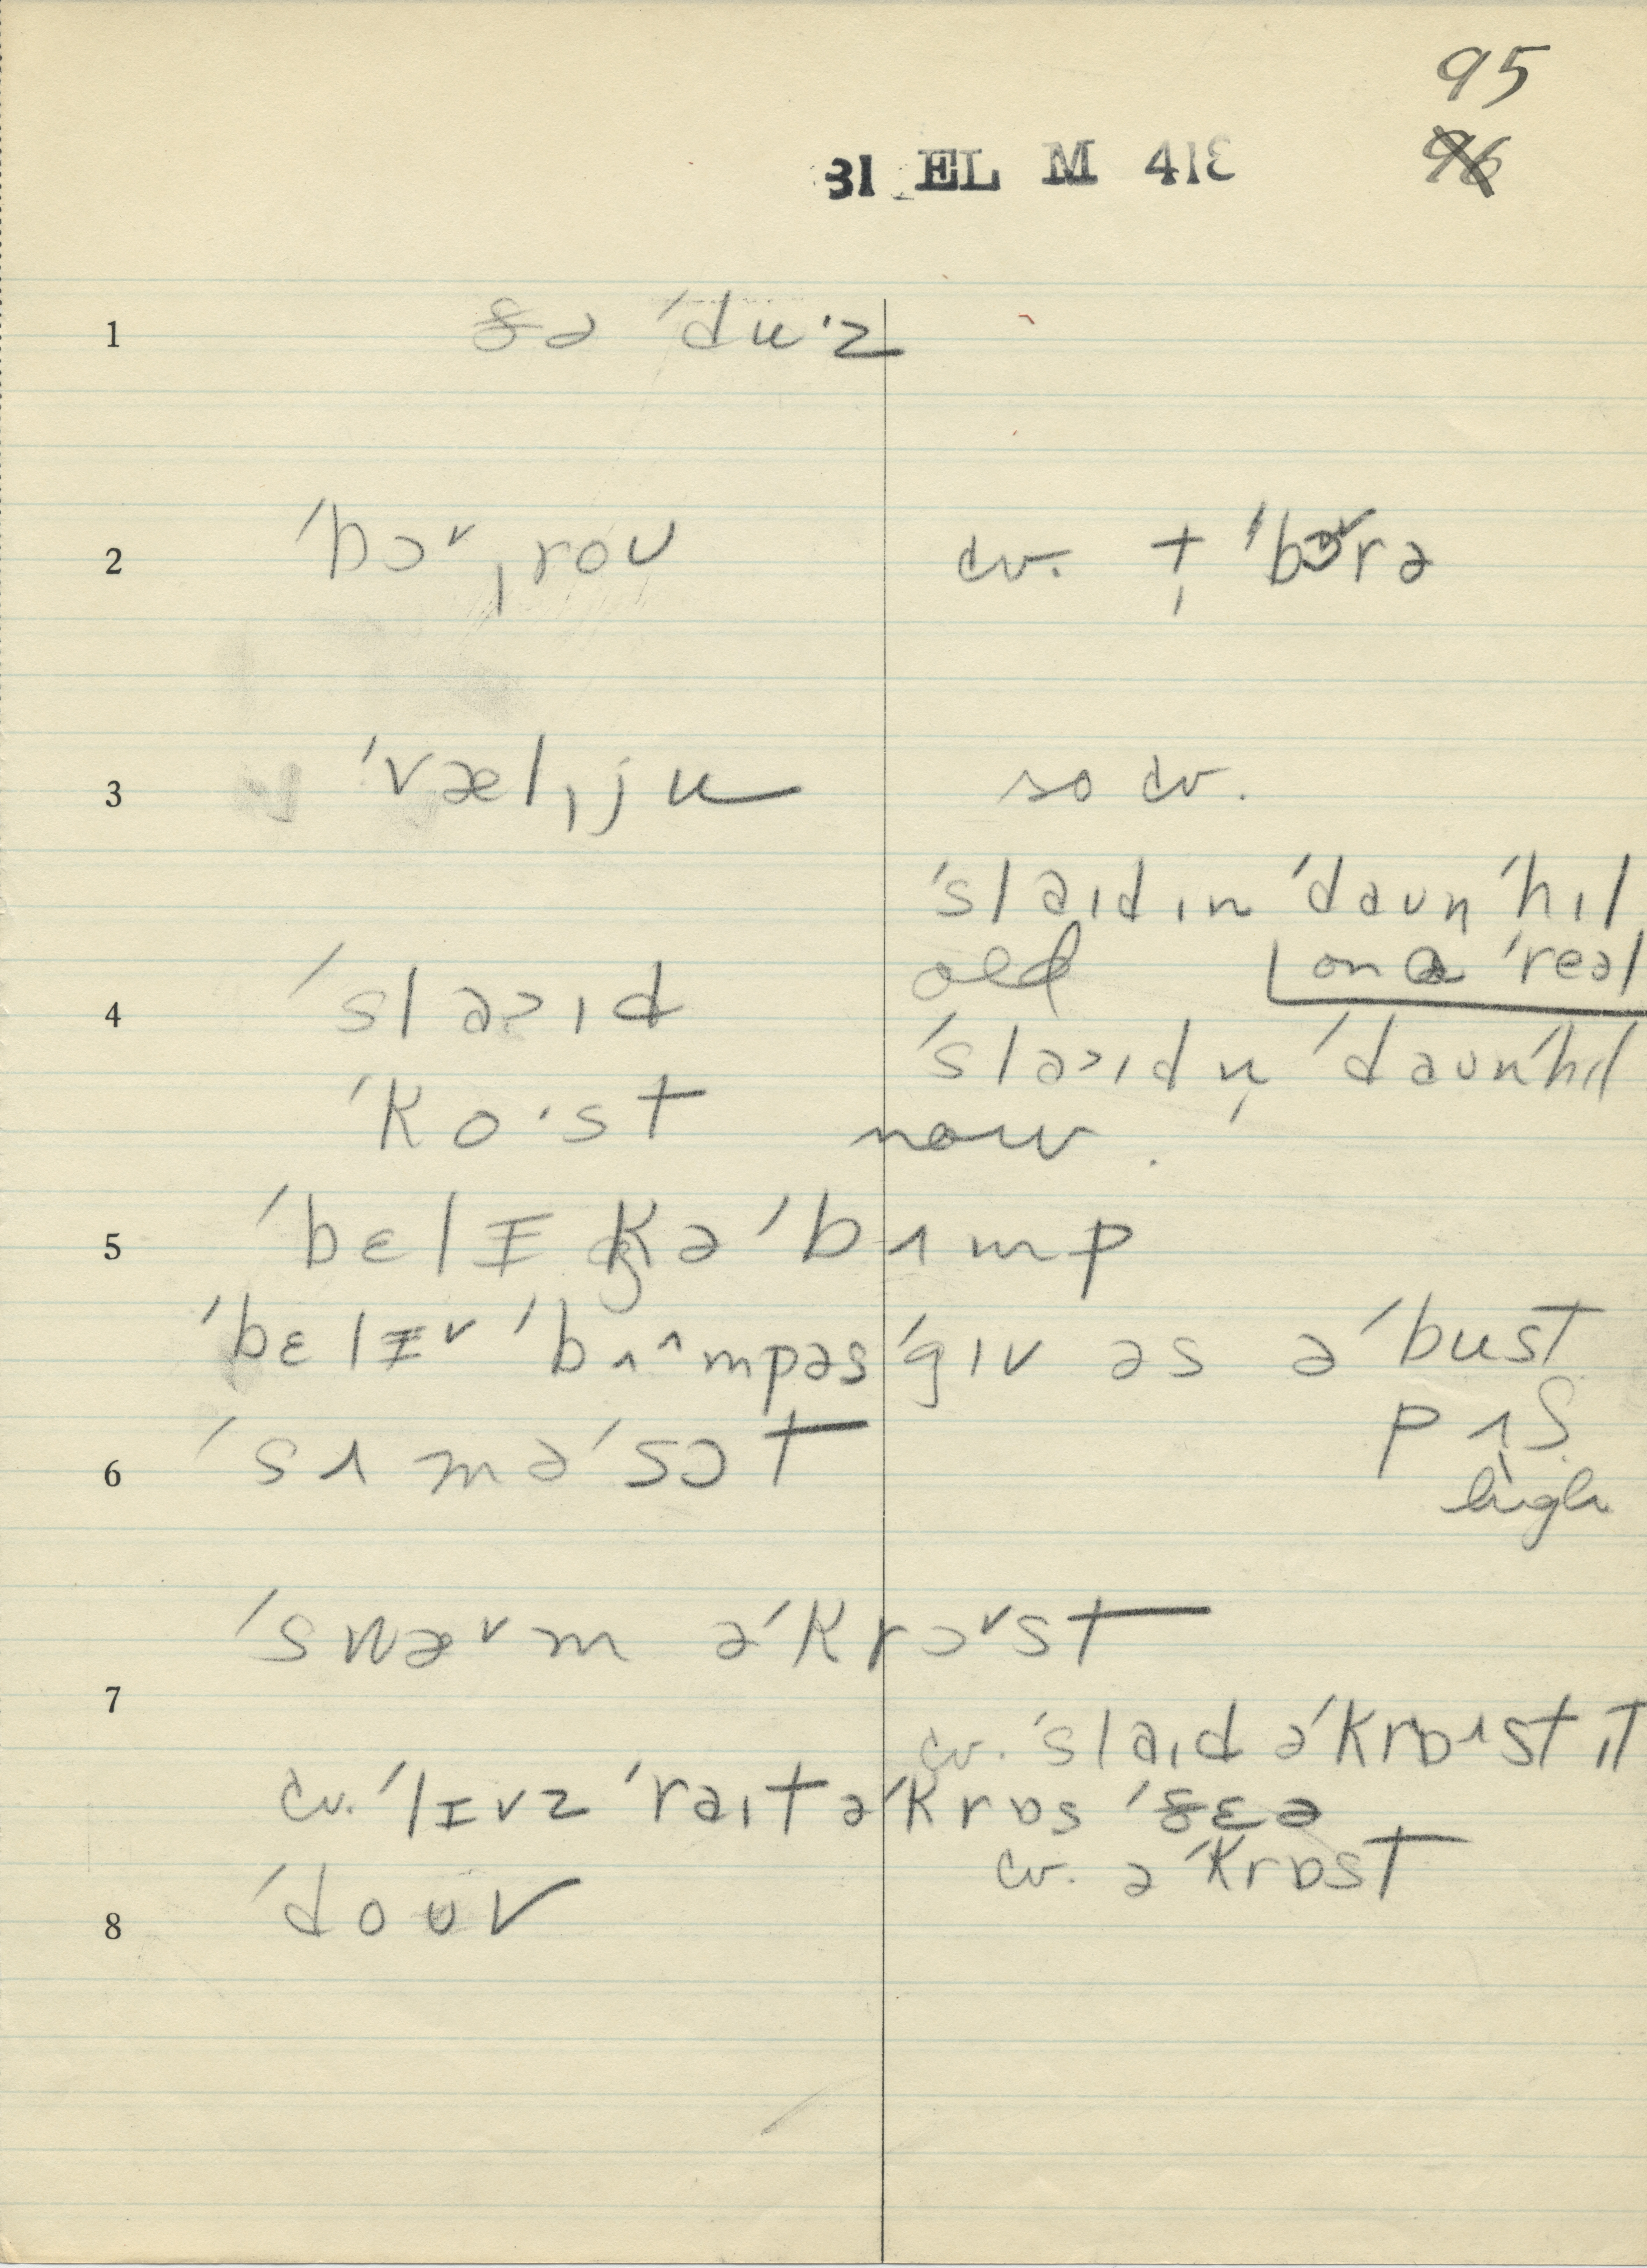 95
96
31 EL M 418
1 ðə ˈduˑz
2 ˈbɔ˅ˌrou cv. † ˈbɔ˅rə
3 ˈvælˌju so cv.
ˈslaɪdɪn ˈdaʊn ˈhɪl
old on a ˈreəl
4 ˈslaɪd
ˈslaɪdn̩ ˈdaʊnˈhɪl
ˈkoˑst now.
5 ˈbɛlɪkəˈbʌmp
ˈbɛlɪ˅ ˈbʌ^mpəs ˈgɪv əs ə ˈbust
pʌʃ
6 ˈsʌməˈsɔt
high
ˈswæ˅m əˈkrɔ˅st
7
cv. ˈslaɪd əˈkrɒst ɪt
cv. ˈlɪvz ˈraɪt əˈkrɒs ˈðɛə
cv. əˈkrɒst
8 ˈdouv